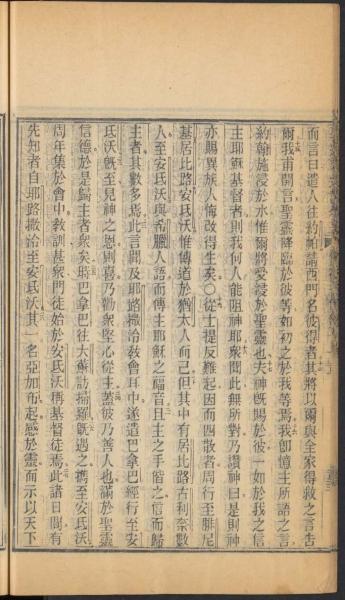 而言曰遣人往約帕請西門名彼得者其將以爾與全家得救之言告
爾我甫開言聖靈降臨於彼等如初之於我等焉我卽憶主所語之言
約翰施浸於水惟爾將受浸於聖靈也夫神旣賜於彼一如於我之信
主耶穌基督者則我何人能阻神耶衆聞此無所對乃讚神曰是則神
亦賜異族人悔改得生矣〇從士提反難起因而四散者周行至腓尼
基居比路安氐沃惟傳道於猶太人而已但其中有居比路古利奈數
人至安氐沃與希臘人語而傳主耶穌之福音且主之手偕之信而歸
主者其數多焉此言聞及耶路撒冷教會耳中遂遣巴拿巴經行至安
氐沃旣至見神之恩則喜乃勸衆堅心從主蓋彼乃善人也滿於聖靈
信德於是歸主者衆矣時巴拿巴往大蘇訪掃羅旣遇之攜至安氐沃
周年集於會中教訓甚衆門徒始於安氐沃稱基督徒焉此諸日間有
先知者自耶路撒冷至安氐沃其一名亞加布起感於靈而示以天下